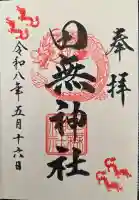 奉拝
田無神社
令和八年五月十六日